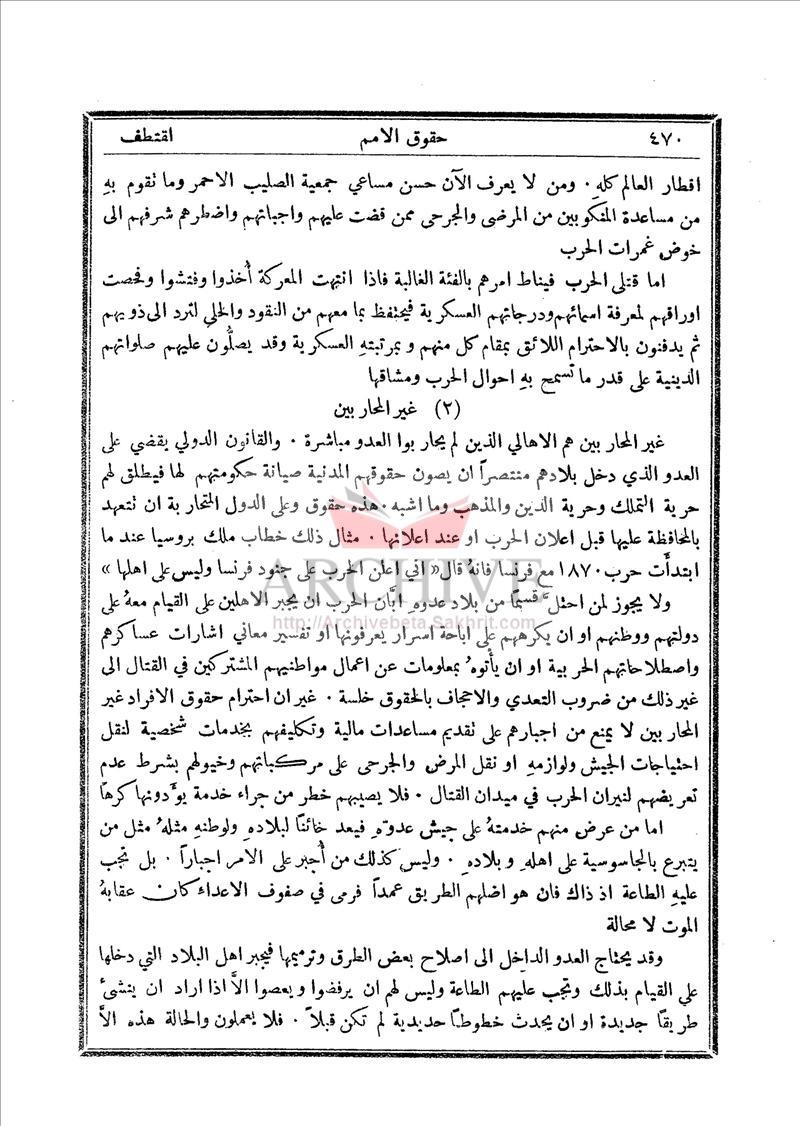 ٤٧٠ حقوق الامم اقتطف
اقطار العالم كلهِ ٠ ومن لا يعرف الآن حسن مساعي جمعية الصليب الاحمر وما تقوم بهِ
من مساعدة المنكوبين من المرضى والجرحى ممن قضت عليهم واجباتهم واضطرهم شرفهم الى
خوض غمرات الحرب
اما قتلى الحرب فيناط امرهم بالفئة الغالبة فاذا انتهت المعركة أُخذوا وفتشوا وفحصت
اوراقهم لمعرفة اسمائهم ودرجاتهم العسكرية فيحتفظ بما معهم من النقود والحلي لترد الى ذويهم
ثم يدفنون بالاحترام اللائق بمقام كل منهم وبمرتبتهِ العسكرية وقد يصلُّون عليهم صلواتهم
الدينية على قدر ما تسمح بهِ احوال الحرب ومشاقها
(٢) غير المحاربين
غير المحاربين هم الاهالي الذين لم يحاربوا العدو مباشرة ٠ والقانون الدولي يقضي على
العدو الذي دخل بلادهم منتصراً ان يصون حقوقهم المدنية صيانة حكومتهم لها فيطلق لهم
حرية التملك وحرية الدين والمذهب وما اشبه ٠ هذه حقوق وعلى الدول المتحاربة ان تتعهد
بالمحافظة عليها قبل اعلان الحرب او عند اعلانها ٠ مثال ذلك خطاب ملك بروسيا عند ما
ابتدأَت حرب ١٨٧٠ مع فرنسا فانهُ قال « اني اعلن الحرب على جنود فرنسا وليس على اهلها »
ARCHIVE
ولا يجوز لمن احتلَّ قسماً من بلاد عدوهِ ابَّان الحرب ان يجبر الاهلين على القيام معهُ على
http://Archivebeta.Sakhrit.com
دولتهم ووطنهم او ان يكرههم على اباحة اسرار يعرفونها او تفسير معاني اشارات عساكرهم
واصطلاحاتهم الحربية او ان يأتوهُ بمعلومات عن اعمال مواطنيهم المشتركين في القتال الى
غير ذلك من ضروب التعدي والاجحاف بالحقوق خلسة ٠ غير ان احترام حقوق الافراد غير
المحاربين لا يمنع من اجبارهم على تقديم مساعدات مالية وتكليفهم بخدمات شخصية لنقل
احتياجات الجيش ولوازمهِ او نقل المرضى والجرحى على مركباتهم وخيولهم بشرط عدم
تعريضهم لنيران الحرب في ميدان القتال ٠ فلا يصيبهم خطر من جراء خدمة يؤَدونها كرهاً
اما من عرض منهم خدمتهُ على جيش عدوهِ فيعد خائناً لبلادهِ ولوطنهِ مثلهُ مثل من
يتبرع بالجاسوسية على اهلهِ وبلادهِ ٠ وليس كذلك من أُجبر على الامر اجباراً ٠ بل تجب
عليهِ الطاعة اذ ذاك فان هو اضلهم الطريق عمداً فرمى في صفوف الاعداء كان عقابهُ
الموت لا محالة
وقد يحتاج العدو الداخل الى اصلاح بعض الطرق وترميمها فيجبر اهل البلاد التي دخلها
على القيام بذلك وتجب عليهم الطاعة وليس لهم ان يرفضوا ويعصوا الَّا اذا اراد ان ينشئَ
طريقاً جديدة او ان يحدث خطوطاً حديدية لم تكن قبلاً ٠ فلا يعملون والحالة هذه الَّا